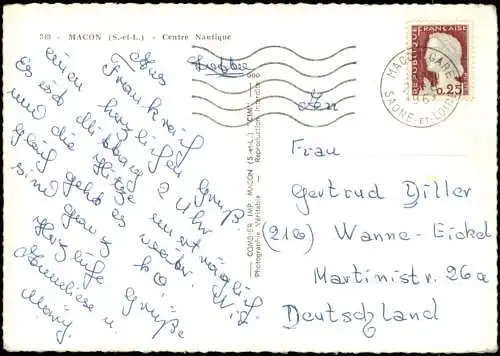 348 - MACON (S.-et-L.) - Centre Nautique
Aus
Frankreich
einen herzlichen Gruß
Es ist Mittag 2 Uhr
und die Hitze unerträglich.
gleich geht es weiter. Wir
sind ganz k.o.
Herzliche Grüße
Anneliese u.
COMBIER IMP. MACON (S.-et-L.) "CIM"
Photographie Véritable - Reproduction interdite
REPUBLIQUE FRANÇAISE
0,25
MACON GARE
SAONE-ET-LOIRE
An
Frau
Gertrud Diller
(216) Wanne-Eickel
Martinistr. 26a
Deutschland